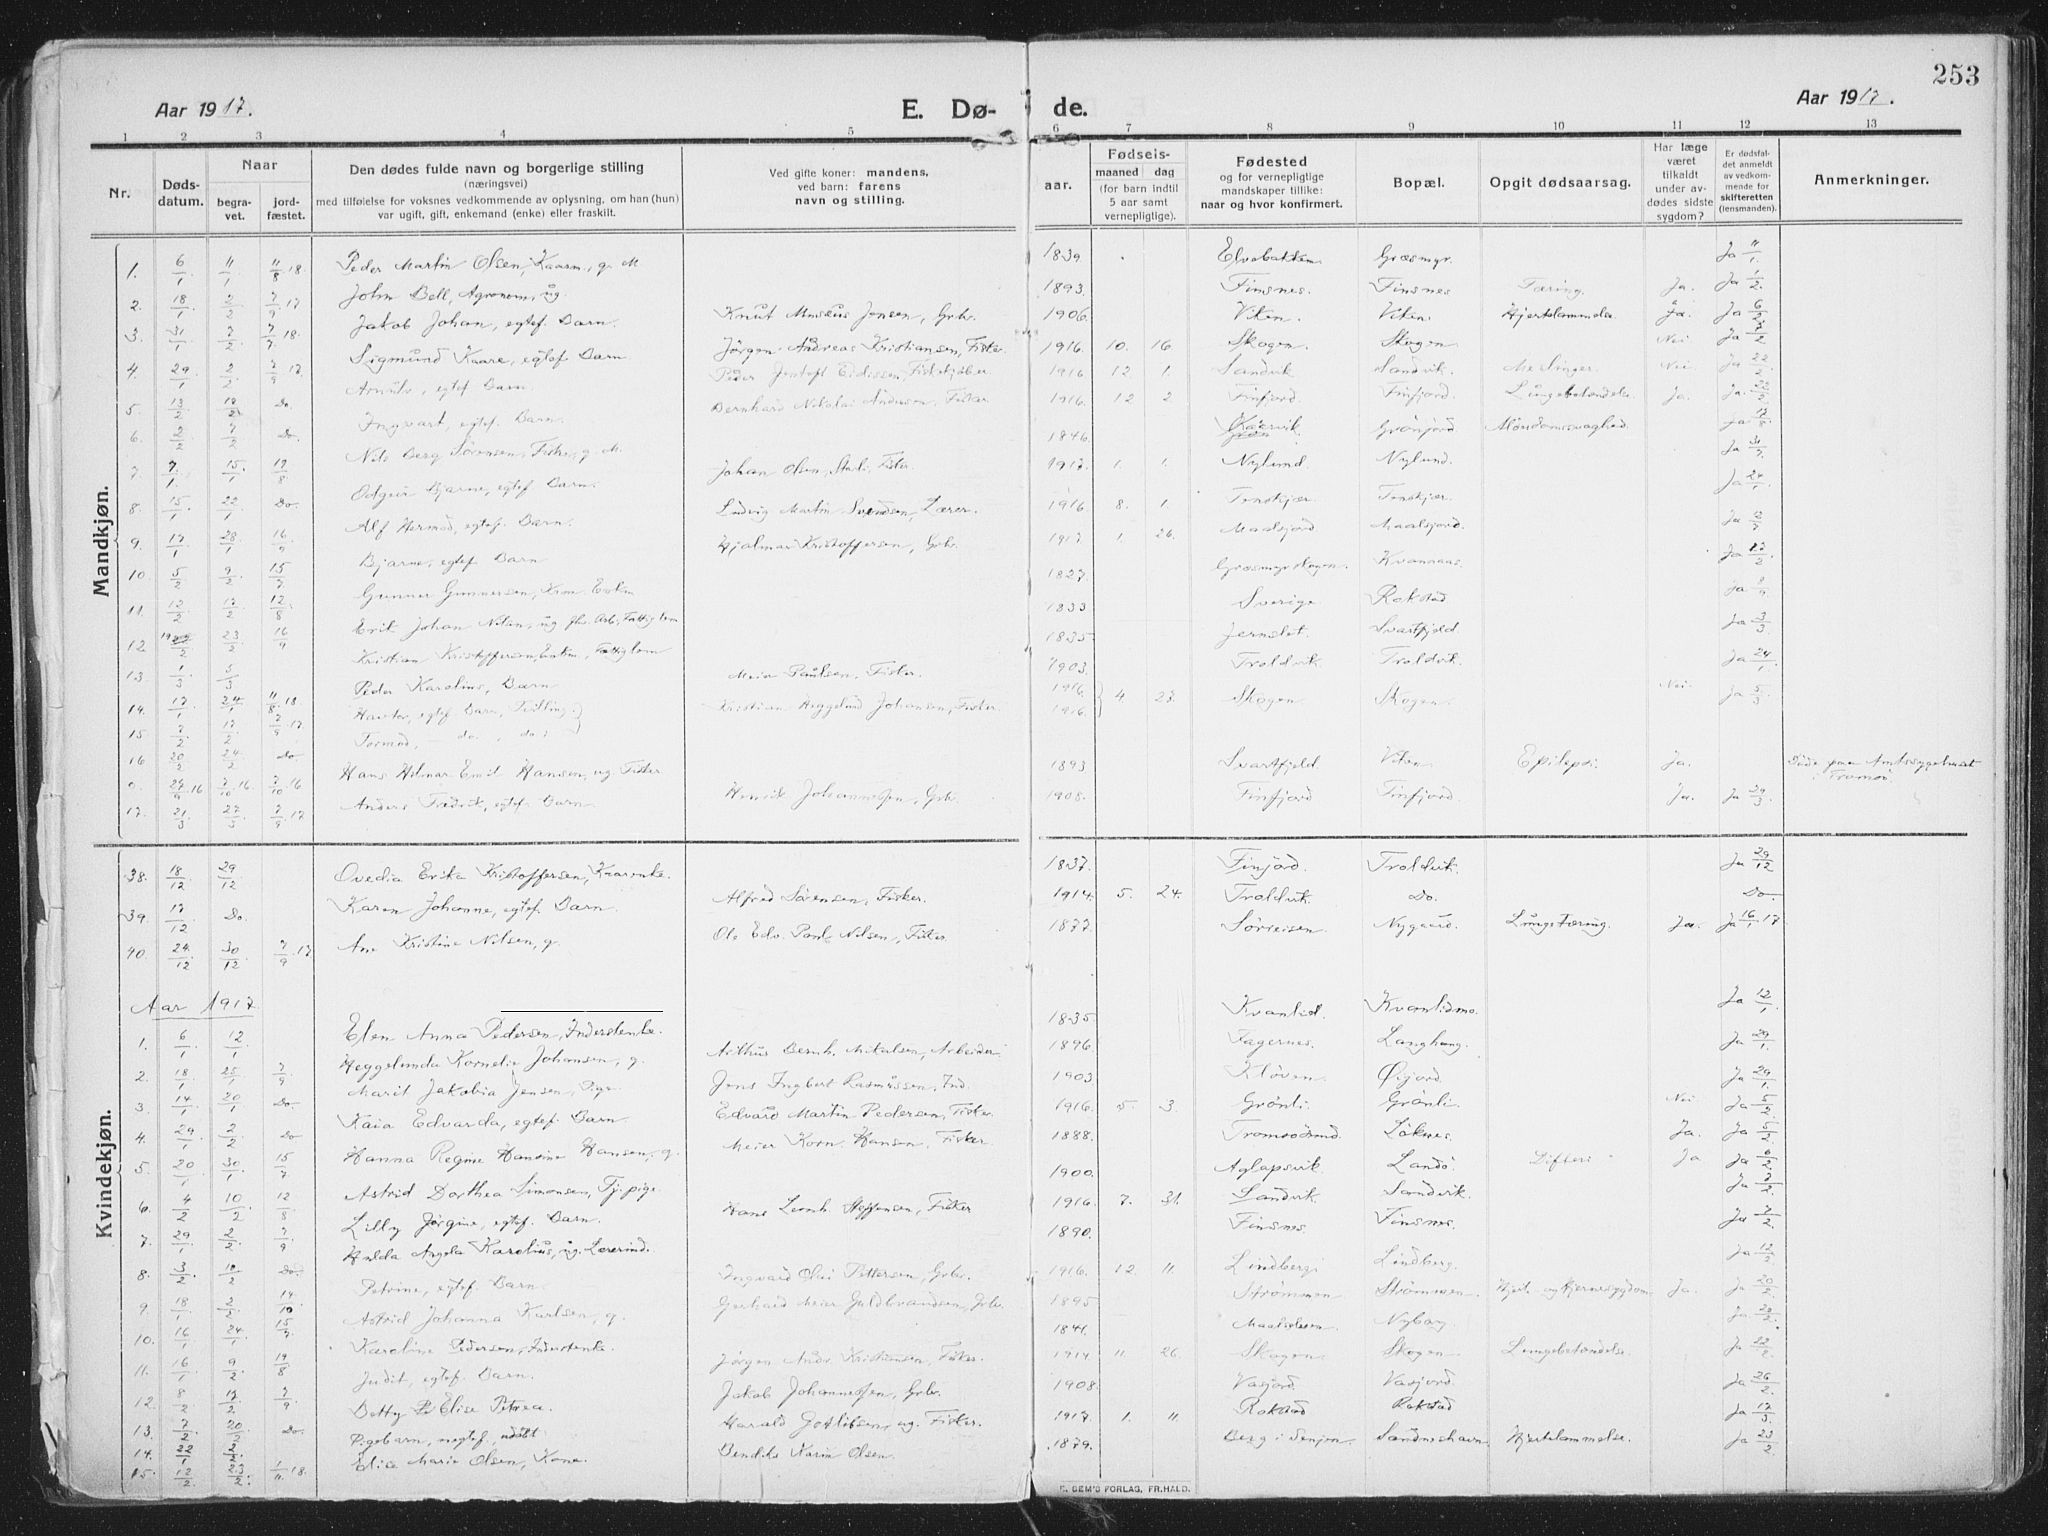 253
Aar 1917.
E. Dø-
de.
Aar 1917.
1 2 3 4 5 6 7 8 9 10 11 12 13
Nr.
Dødsdatum.
Naar
begravet.
jordfæstet.
Den dødes fulde navn og borgerlige stilling
(næringsvei)
med tilføielse for voksnes vedkommende av oplysning, om han (hun)
var ugift, gift, enkemand (enke) eller fraskilt.
Ved gifte koner: mandens,
ved barn: farens
navn og stilling.
aar.
Fødseis-
maaned dag
(for barn indtil
5 aar samt
vernepligtige).
Fødested
og for vernepligtige
mandskaper tillike:
naar og hvor konfirmert.
Bopæl.
Opgit dødsaarsag.
Har læge
været
tilkaldt
under av-
dødes sidste
sygdom?
Er dødsfal-
det anmeldt
av vedkom-
mende for
skifteretten
(lensmanden).
Anmerkninger.
Mandkjøn.
1. 6/1 11/1 11/8 18. Peder Martin Olsen, Kaarm., g. M 1839 Elvebakken Græsmyr. Ja 11/1.
2. 18/1 2/2 7/9 17 John Bell, Agronom, ug. 1893. Finsnes. Finsnes Tæring. Ja. Ja 1/2.
3. 31/1 7/2 7/7 18. Jakob Johan, egtef. Barn. Knut Musæus Jensen, Grbr. 1906 Viken. Viken. Hjertelammelse Ja. Ja 6/2
4. 29/1 2/2 7/9 17. Sigmund Kaare, egtef. Barn Jørgen Andreas Kristiansen, Fisker 1916. 10. 16. Skogen. Skogen Nei Ja 7/2
5. 13/2 19/2 Do. Arnulv, egtef Barn. Peder Jentoft Eidissen, Fiskekjøber 1916 12 1. Sandvik Sandvik. Meslinger. Nei Ja 22/2
6. 2/2 7/2 Do. Ingvart, egtef. Barn. Bernhard Nikolai Andersen, Fisker 1916. 12 2 Finfjord. Finfjord. Lungebetændelse Ja.
7. 7/1. 15/1 19/8 Nils Berg Sørensen, Fisker, g. M. 1846. Grønfjord. Alderdomssvaghed.
8. 15/1 22/1. Do. Odgeir Bjarne, egtef Barn. Johan Olsen, Fisker. 1917. 1. 1. Nylund. Nylund.
9. 17/1 28/1 16/9 Alf Hermod, egtef. Barn. Ludvig Martin Svendsen, Lærer. 1916. 8. 1. Tenskjær. Tenskjær. Ja 24/1
10 5/2 9/2 15/7 Bjarne, egtef Barn Hjalmar Kristoffersen, Grbr. 1917. 1. 26. Maalsfjord Maalsfjord.
11. 12/2 17/2 12/8 Gunner Gunnersen, 1827. Græsmyrskogen. Kvannaas.
12 23/2 16/9 Erik Johan Nilsen, ug. fhv. Arb., Fattiglem 1833. Sverige Rokstad
13 1/3 5/3 Kristian Kristoffersen, Enkem., Fattiglem 1835 Jernslet. Svartfjeld. Ja 3/3
14. 17/1 24/1 11/8 18 Peder Karolius, Barn Meier Paulsen, Fisker. 1903. Troldvik. Troldvik. Ja 24/1
15 7/2 17/2. 7/9 17. Havtor, egtef Barn, Tvilling. Kristian Heggelund Johansen, Fisker. 1916 4. 23. Skogen Skogen. Nei. Ja 5/3
16 20/2 24/2 Do Tormod, do. do. 1916
9. 24/9 16 7/10 16. 7/10 16 Hans Hilmar Emil Hansen, ug. Fisker 1893 Svartfjeld. Viken Epilepsi Ja. Døde paa Amtssygehuset
i Tromsø.
17. 21/3 27/3 7/9 17 Anders Fredrik, egtef Barn Henrik Johannessen, Grbr. 1908. Finfjord Finfjord. Ja. Ja 29/3.
Kvindekjøn.
38. 18/12 29/12 Ovedia Erika Kristoffersen, Kaarenke. 1837. Finjord. Troldvik. Ja 29/12
39. 17/12 Do. Karen Johanne, egtef. Barn. Alfred Sørensen, Fisker. 1914. 5. 24. Troldvik. Do. Do.
40. 24/12 30/12 7/9 17 Ane Kristine Nilsen, g. Ole Edv. Paul Nilsen, Fisker. 1877. Sørreisen. Nygaard. Lungetæring. Ja. Ja 16/1 17
Aar 1917.
1. 6/1 12/1 Elen Anna Pedersen, Inderstenke. 1835 Kvanlid. Kvanlidmo. Ja 12/1
2. 18/1 25/1 7/9 Heggelunda Kornelie Johansen, g. Arthur Bernh. Mikalsen, Arbeider. 1896. Fagernes. Langhaug. Ja 29/1.
3. 14/1 20/1 Do Marit Jakobia Jensen, Pige. Jens Ingbert Rasmussen, Ind. 1903 Kløven. Øijord. Ja 29/1
4. 29/1 2/2 Do Kaia Edvarda, egtef. Barn Edvard Martin Pedersen, Fisker. 1916 5. 3. Grønli. Grønli. Nei Ja 5/2
5. 20/1 30/1 15/7 Hanna Regine Hansine Hansen, g. Meier Korn. Hansen, Fisker. 1888. Tromsøsund. Løknes. Ja. Ja 5/2
6 4/2 10/2 12/8 Astrid Dorthea Simonsen, Tj.pige. 1900. Aglapsvik. Landø. Difteri Ja Ja 6/2
7. 29/1 2/2 7/9 Lilly Jørgine, egtef. Barn. Hans Leonh. Steffensen, Fisker 1916 7. 31. Sandvik. Sandvik. Ja 7/2
8. 3/2 18/2 Do. Hulda Angela Karolius, ug. Lærerind. 1890. Finsnes. Finsnes. Ja 7/2.
9. 18/1 2/2 14/10 Petrine, egtef. Barn. Ingvard Olai Pettersen, Grbr. 1916. 12. 11. Lindberg. Lindberg. Ja 12/2
10. 16/1 24/1 15/7 Astrid Johanna Karlsen, g. Gerhard Meier Guldbrandsen, Grbr. 1895 Strømmen Strømmen. Hjerte- og Hjernesygdom Ja. Ja 20/2
11. 16/1 9/2 19/8 Karoline Pedersen, Inderstenke. 1841. Maalselven Nyborg. Ja 22/2.
12. 8/2 17/2 7/9 Judit, egtef. Barn. Jørgen Andr. Kristiansen, Fisker. 1914 11. 26. Skogen. Skogen Lungebetændelse. Ja 22/2
13. 7/2 20/2 Do. Betty Elise Petrea. Jakob Johannessen, Grbr. 1908. Vasjord. Vasjord. Ja 26/2
14. 22/1 2/2 Pigebarn, uegtef., udøbt Harald Gotlibsen, ug. Fisker. 1917. 1. 11. Rokstad Rokstad Ja 17/3
15. 12/2 23/2 1/11 18. Elise Marie Olsen, Kone. Bendiks Karin Olsen. 1879. Berg i Senjen. Sandneshavn. Hjertelammelse. Ja 23/2
E. SEM'S FORLAG, FR.HALD.